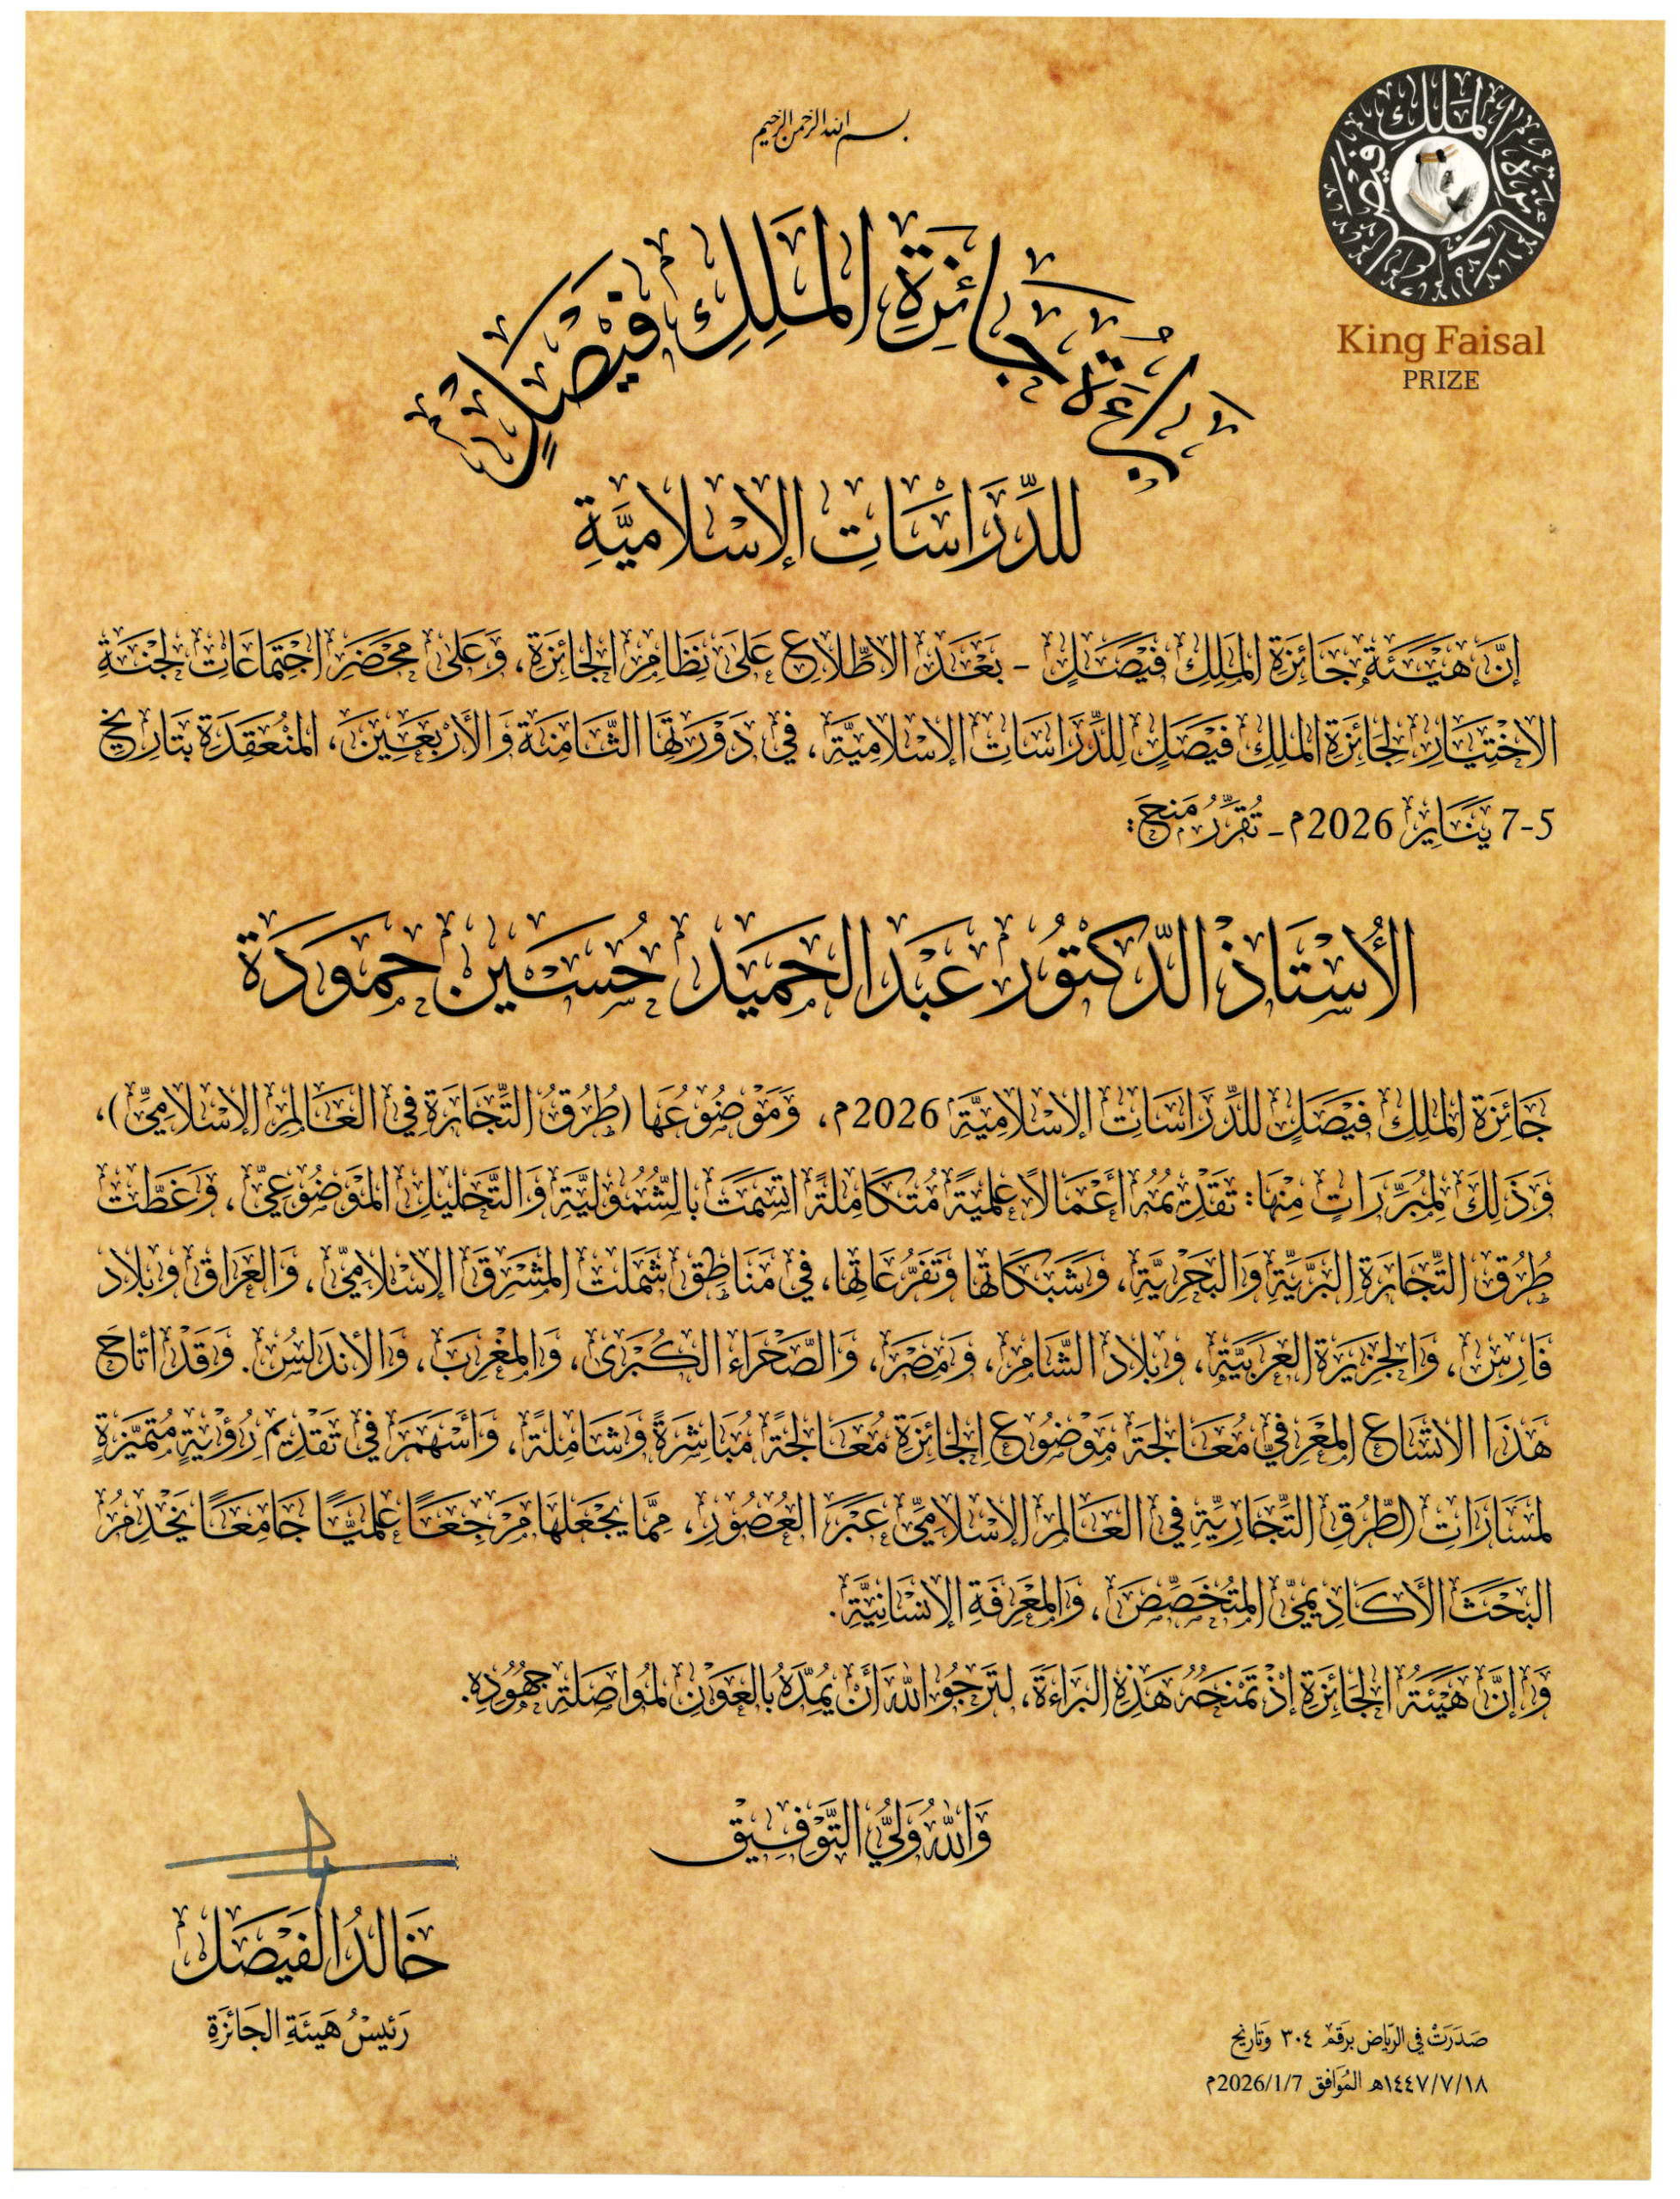 بسم الله الرحمن الرحيم
جائزة الملك فيصل العالمية
King Faisal
PRIZE
بَرَاءَةُ جَائِزَةِ المَلِكِ فَيْصَلٍ
للدِّرَاسَاتِ الإِسْلَاميَّةِ
إنَّ هَيْئَةَ جَائِزَةِ المَلِكِ فَيْصَلٍ - بَعْدَ الاطِّلَاعِ عَلَى نِظَامِ الجَائِزَةِ، وَعَلَى مَحْضَرِ اجْتِمَاعَاتِ لَجْنَةِ
الاخْتِيَارِ لجَائِزَةِ المَلِكِ فَيْصَلٍ لِلدِّرَاسَاتِ الإسْلَامِيَّةِ، في دَوْرَتِهَا الثَّامِنَةِ وَالأَرْبَعِينَ، المُنْعَقِدَةِ بتَارِيخِ
5-7 يَنَايِر 2026م - تُقَرِّرُ مَنْحَ:
الأُسْتَاذِ الدّكتُورِ عَبْدالحَمِيْد حُسَيْن حمودَة
جَائِزَةَ المَلِكِ فَيْصَلٍ للدِّرَاسَاتِ الإسْلَامِيَّةِ 2026م، وَمَوْضُوعُهَا (طُرُقُ التِّجَارَةِ فِي العَالَمِ الإسْلَامِيِّ)،
وَذَلِكَ لِمُبَرِّرَاتٍ مِنْهَا: تَقْدِيمُهُ أَعْمَالاً عِلْمِيَّةً مُتَكَامِلَةً اتَّسَمَتْ بالشُّمُوليَّةِ وَالتَّحْلِيلِ المَوْضُوعِيِّ، وَغَطَّتْ
طُرُقَ التِّجَارَةِ البَرِّيَّةِ وَالبَحْرِيَّةِ، وَشَبَكَاتها وَتَفَرُّعَاتها، في مَنَاطِقَ شَمَلت المَشْرِقَ الإسْلَامِيّ، وَالعِرَاقَ وبلَادَ
فَارِسَ، وَالجَزِيرَةَ العَرَبِيَّةَ، وبلَادَ الشَّامِ، وَمِصْرَ، وَالصَّحْرَاءَ الكُبْرَى، وَالمَغْرِبَ، وَالأنْدَلُسَ. وَقَدْ أتَاحَ
هَذَا الاتِّسَاعُ المَعْرِفيُّ مُعَالجَةَ مَوْضُوعِ الجَائِزَةِ مُعَالجَةً مُبَاشَرَةً وَشَامِلَةً، وَأَسْهَمَ فِي تَقْدِيمِ رُؤْيَةٍ مُتَمَيِّزَةٍ
لمَسَارَاتِ الطُّرُقِ التِّجَارِيَّةِ في العَالَمِ الإسْلَامِيِّ عَبْرَ العُصُورِ، مِمَّا يَجْعَلهَا مَرْجِعًا عِلْمِيًّا جَامِعًا يَخْدِمُ
البَحْثَ الأَكَادِيمِيَّ المُتَخَصِّصَ، وَالمَعْرِفَةَ الإنْسَانِيَّةَ.
وَإنَّ هَيْئَةَ الجَائِزَةِ إذْ تَمْنَحُهُ هَذِهِ البَرَاءَةَ، لتَرْجُو اللهَ أَنْ يُمِدَّهُ بالعَوْنِ لمُوَاصَلَةِ جُهُودِهِ.
وَاللهُ وَليُّ التَّوْفِيقِ
خَالِدُ الفَيْصَل
رَئِيسُ هَيئَةِ الجَائزَةِ
صَدَرَتْ في الرِّيَاضِ بِرَقم ٣٠٤ وَتَاريخ
١٤٤٧/٧/١٨هـ المُوَافق 2026/1/7م